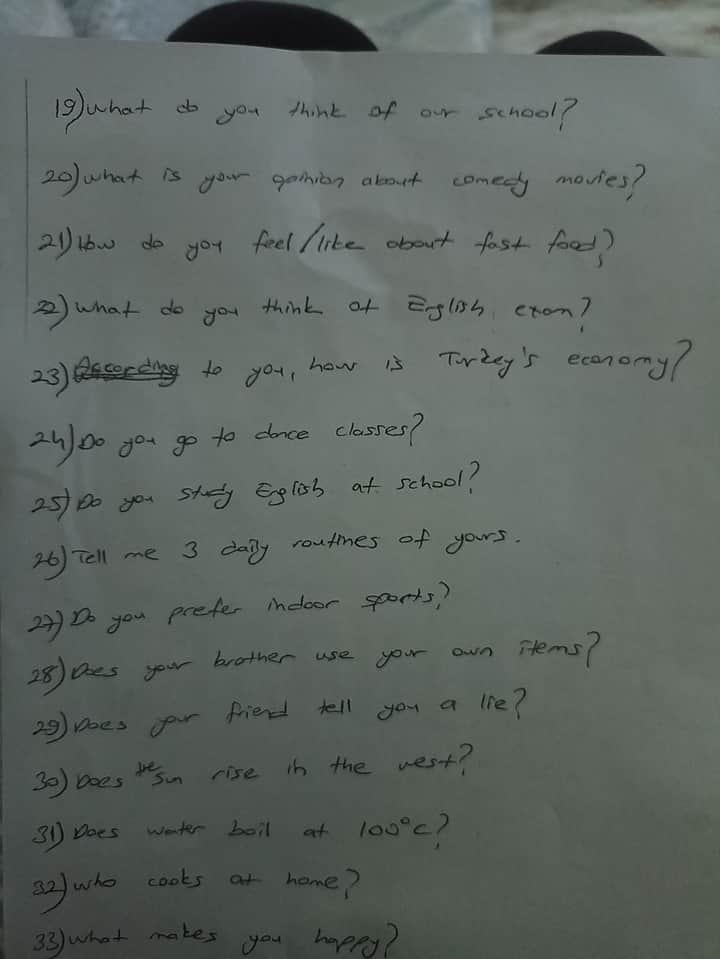 19) What do you think of our school?
20) What is your opinion about comedy movies?
21) How do you feel/like about fast food?
22) What do you think of English exam?
23) According to you, how is Turkey's economy?
24) Do you go to dance classes?
25) Do you study English at school?
26) Tell me 3 daily routines of yours.
27) Do you prefer indoor sports?
28) Does your brother use your own items?
29) Does your friend tell you a lie?
30) Does the sun rise in the west?
31) Does water boil at 100°C?
32) Who cooks at home?
33) What makes you happy?